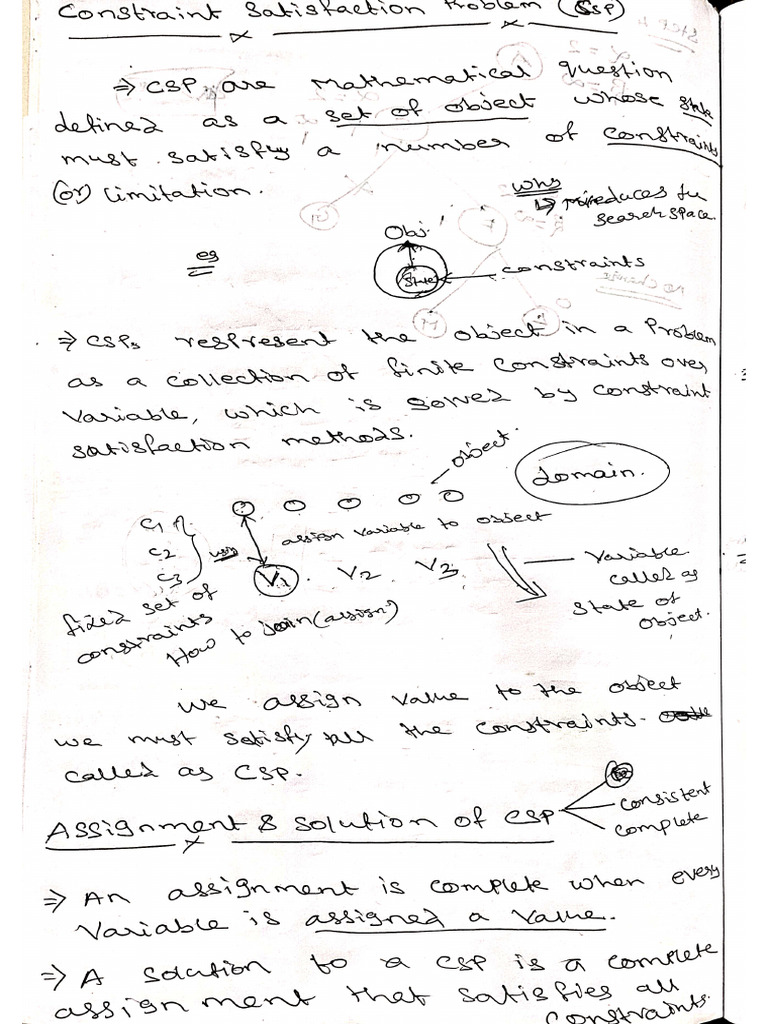 Constraint Satisfaction Problem (CSP)
⇒ CSP are mathematical question
defined as a set of object whose state
must satisfy a number of constraints
(or) limitation.
why
↳ reduces the
search space.
Obj.
eg
State
constraints
⇒ CSPs respresent the object in a Problem
as a collection of finite constraints over
Variable, which is solved by constraint
satisfaction methods.
object.
domain.
assign variable to object
C1
C2
C3
V1. V2 V3.
Variable
called as
State of
object.
fixed set of
constraints
How to join (assign)
we assign value to the object
we must satisfy all the constraints.
called as CSP.
Assignment & Solution of CSP
consistent
complete
⇒ An assignment is complete when every
Variable is assigned a value.
⇒ A solution to a CSP is a complete
assignment that satisfies all
constraints.